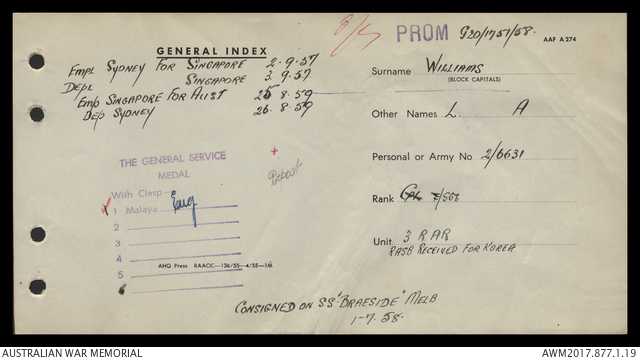 PROM G20/1751/58.
AAF A 274
GENERAL INDEX
Empl SYDNEY FOR SINGAPORE 2.9.57
Depl SINGAPORE 3.9.57
Emb SINGAPORE FOR AUST 25.8.59
Dep SYDNEY 26.8.59
Surname WILLIAMS
(BLOCK CAPITALS)
Other Names L A
Personal or Army No 2/6631
Rank CPL T/SGT
Unit 3 RAR
RASB RECEIVED FOR KOREA
THE GENERAL SERVICE
MEDAL
With Clasp
1 Malaya
2
3
4
5
6
AHQ Press RAAOC—136/55—4/55—1M
CONSIGNED ON SS "BRAESIDE" MELB
1-7.58.
AUSTRALIAN WAR MEMORIAL
AWM2017.877.1.19